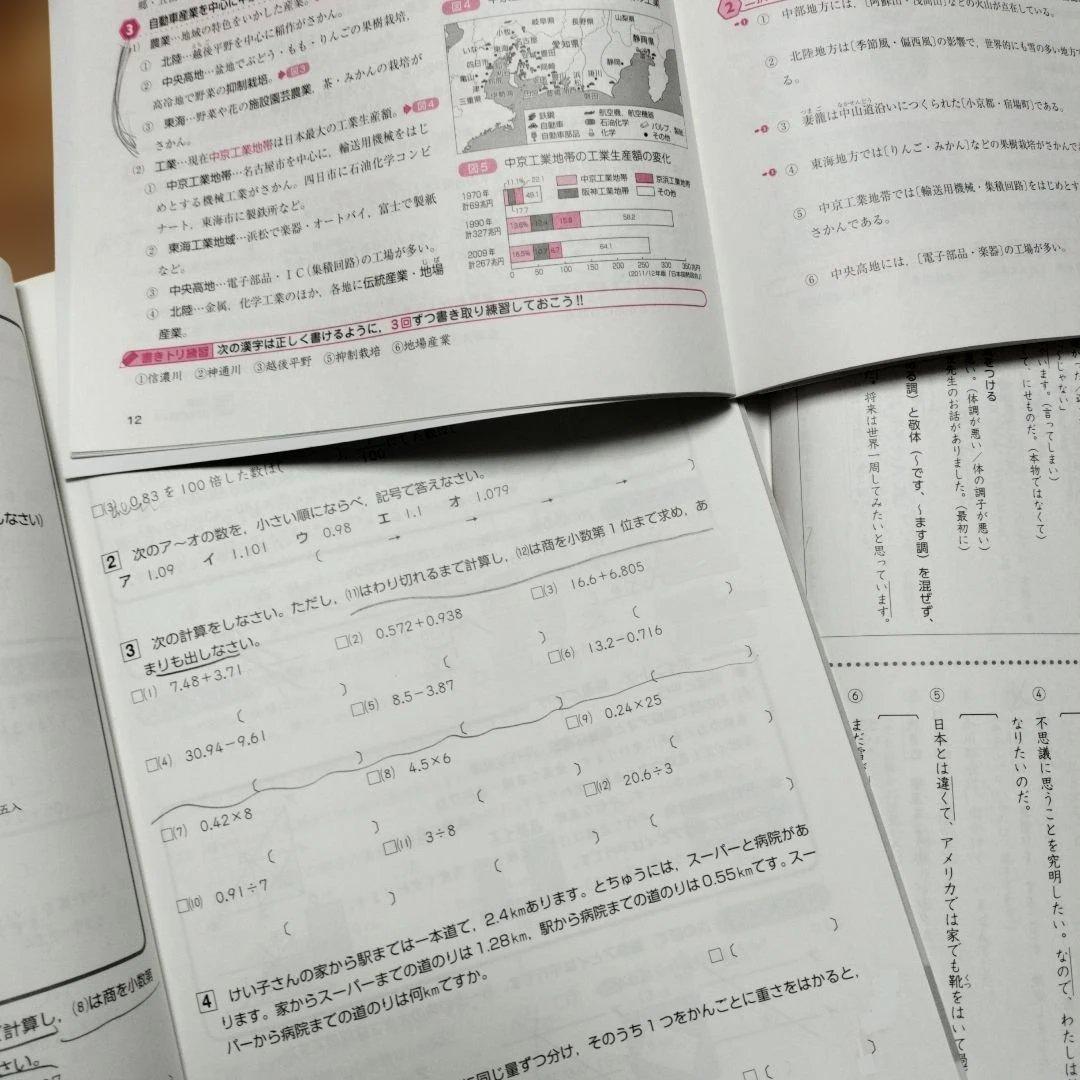 自動車産業を中心に
3
(1) 農業…地域の特色をいかした産業。
① 北陸…越後平野を中心に稲作がさかん。
② 中央高地…盆地でぶどう・もも・りんごの果樹栽培,
高冷地で野菜の抑制栽培。 図3
③ 東海…野菜や花の施設園芸農業,茶・みかんの栽培が
さかん。
(2) 工業…現在中京工業地帯は日本最大の工業生産額。 図4
① 中京工業地帯…名古屋市を中心に,輸送用機械をはじ
めとする機械工業がさかん。四日市に石油化学コンビ
ナート,東海市に製鉄所など。
② 東海工業地域…浜松で楽器・オートバイ,富士で製紙
など。
③ 中央高地…電子部品・IC(集積回路)の工場が多い。
④ 北陸…金属,化学工業のほか,各地に伝統産業・地場
産業。
じば
書きトリ練習 次の漢字は正しく書けるように,3回ずつ書き取り練習しておこう!!
①信濃川 ②神通川 ③越後平野 ⑤抑制栽培 ⑥地場産業
12
図4
岐阜県 長野県 山梨県
愛知県 静岡県
三重県
名古屋
豊田
岡崎
四日市
亀山
津
浜松
掛川
磐田
静岡
鉄鋼
自動車
自動車部品
航空機、航空機器
石油化学
化学
その他
図5 中京工業地帯の工業生産額の変化
中京工業地帯 京浜工業地帯
阪神工業地帯 その他
1970年
計69兆円
11.1% 22.1
49.1
17.7
1990年
計327兆円
13.6% 12.4 15.8 58.2
2009年
計267兆円
64.1
0 50 100 150 200 250 300 350兆円
2
① 中部地方には,
などの火山が点在している。
② 北陸地方は〔季節風・偏西風〕の影響で,世界的にも雪の多い地方で
る。
③ 妻籠は中山道沿いにつくられた〔小京都・宿場町〕である。
つまご なかせんどう
④ 東海地方では〔りんご・みかん〕などの果樹栽培がさかんで
⑤ 中京工業地帯では〔輸送用機械・集積回路〕をはじめとす
さかんである。
⑥ 中央高地には,〔電子部品・楽器〕の工場が多い。
0.83を100倍した数は(
2 次のア〜オの数を,小さい順にならべ,記号で答えなさい。
ア 1.09 イ 1.101 ウ 0.98 エ 1.1 オ 1.079
( → → → → )
3 次の計算をしなさい。ただし,⑾はわり切れるまで計算し,⑿は商を小数第1位まで求め,あ
まりも出しなさい。
□⑴ 7.48+3.71
□⑵ 0.572+0.938
□⑶ 16.6+6.805
□⑷ 30.94−9.61
□⑸ 8.5−3.87
□⑹ 13.2−0.716
□⑺ 0.42×8
□⑻ 4.5×6
□⑼ 0.24×25
□⑽ 0.91÷7
□⑾ 3÷8
□⑿ 20.6÷3
4 けい子さんの家から駅までは一本道で,2.4kmあります。とちゅうには,スーパーと病院があ
ります。家からスーパーまでの道のりは1.28km,駅から病院までの道のりは0.55kmです。スー
パーから病院までの道のりは何kmですか。
□( )
に同じ量ずつ分け,そのうち1つをかんごとに重さをはかると,
□( )
なさい)
五入
て計算し,⑻は商を小数第
さい。
をつける
悪い。(体調が悪い/体の調子が悪い)
先生のお話がありました。(最初に)
います。(言ってしまい)
て、にせものだ。(本物ではなくて)
る調)と敬体(〜です、〜ます調)を混ぜず、
将来は世界一周してみたいと思っています。
④ 不思議に思うことを究明したい。なので、わたしは
なりたいのだ。
⑤ 日本とは違くて、アメリカでは家でも靴をはいて
くつ
⑥ まだ